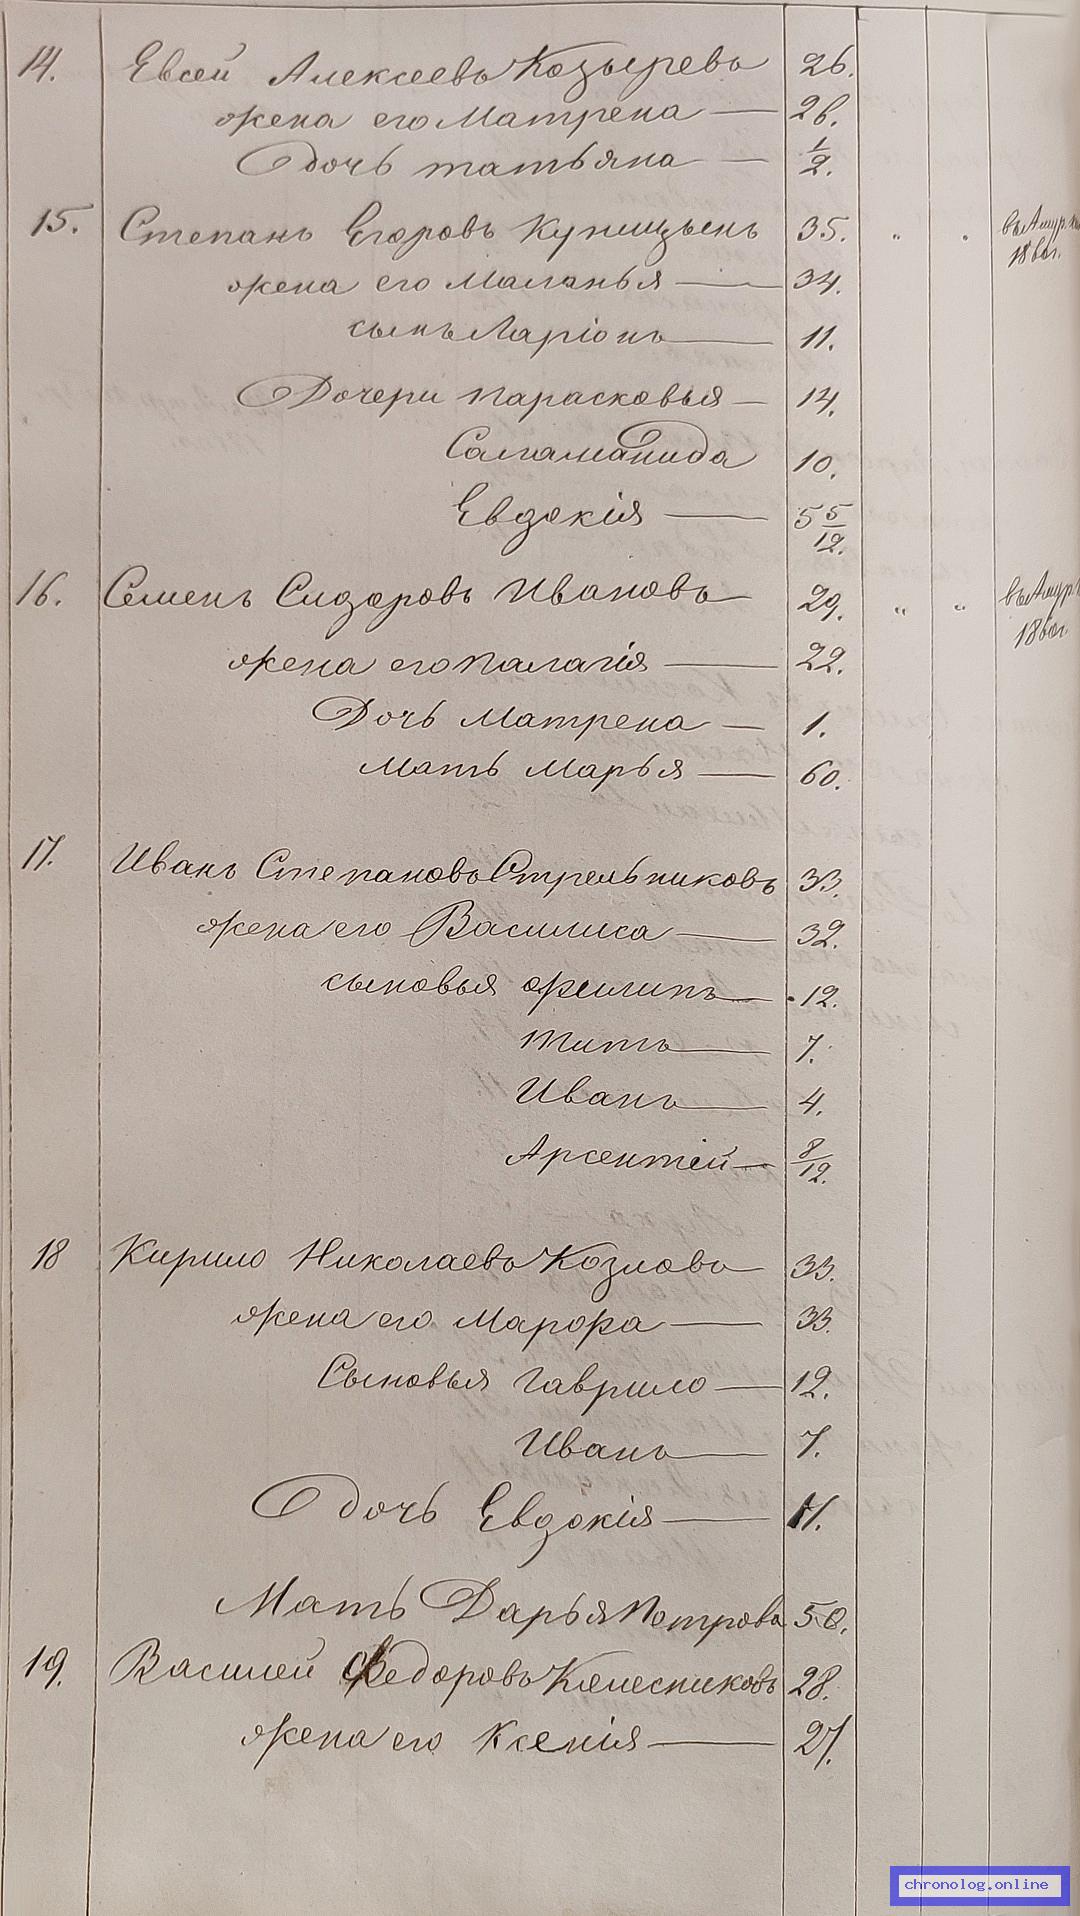 14. Евсей Алексеевъ Козыревъ 26.
жена его Матрена — 26.
Дочь Татьяна — 1/2.
15. Степанъ Егоровъ Купицынъ 35. " "
жена его Маланья — 34.
сынъ Ларіонъ 11.
Дочери Парасковья — 14.
Саламанида 10.
Евдокія — 5 5/12.
16. Семенъ Сидоровъ Ивановъ 29. " "
жена его Палагія — 22.
Дочь Матрена — 1.
Мать Марья — 60.
17. Иванъ Степановъ Стрельниковъ 33.
жена его Василиса — 32.
сыновья Филипъ 12.
Титъ 7.
Иванъ 4.
Арсентій — 8/12.
18 Кирило Николаевъ Козловъ 33.
жена его Марфа — 33.
Сыновья Гаврило — 12.
Иванъ 7.
Дочь Евдокія — 11.
Мать Дарья Петрова 50.
19. Василей Федоровъ Колесниковъ 28.
жена его Ксенія — 27.
chronolog.online